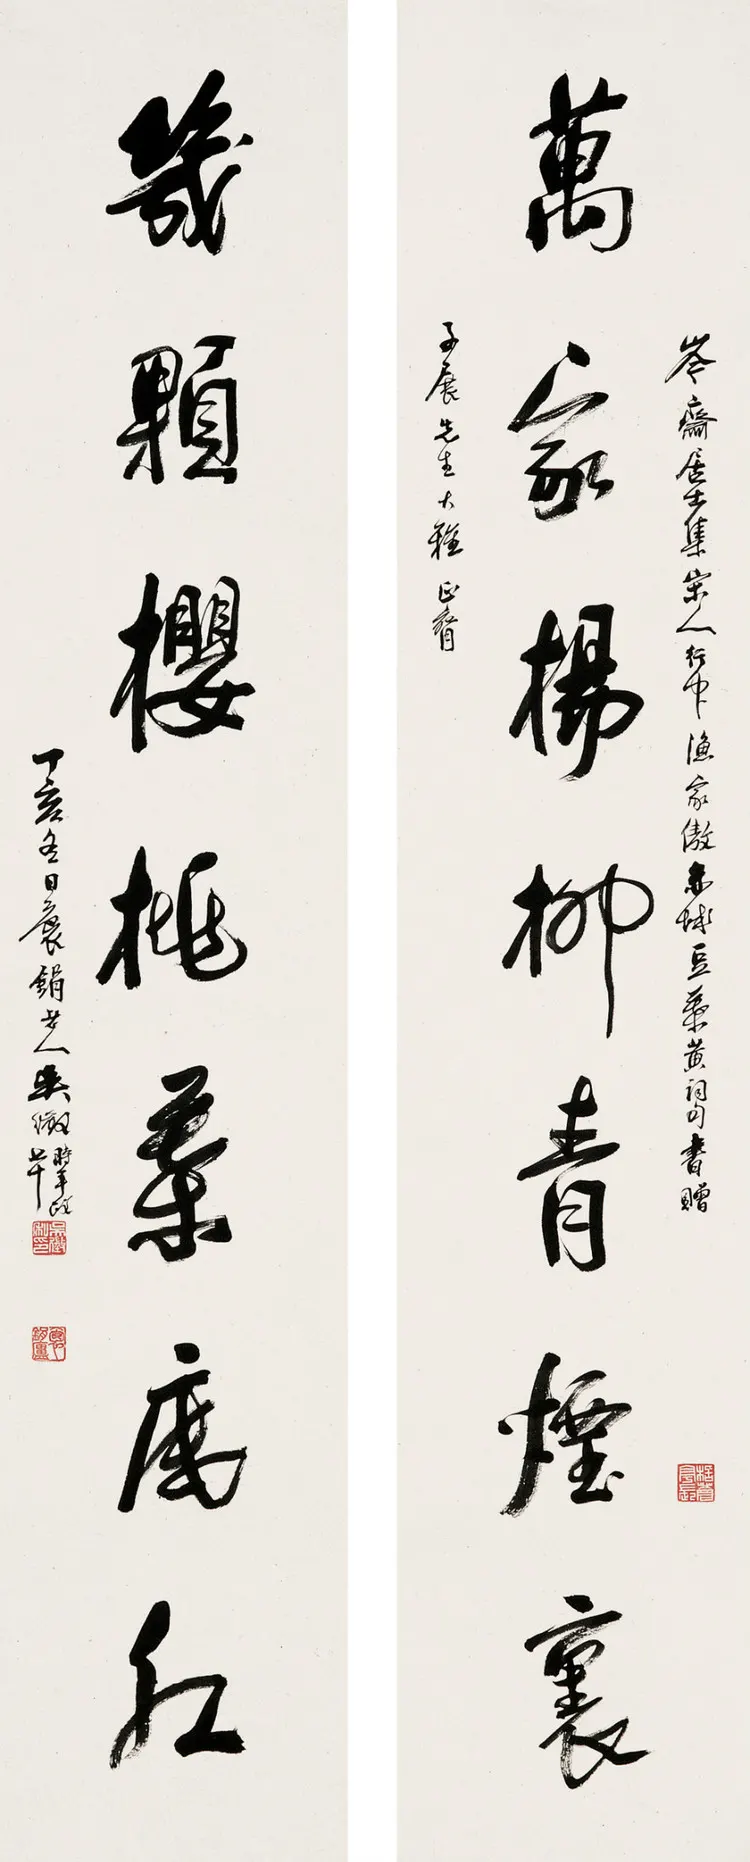 萬家楊柳青煙裏
岑齋居士集宋人行中漁家傲赤城豆葉黃詞句書贈
子展先生大雅正腕
幾顆櫻桃葉底紅
丁亥冬日裒鋗老人吳徵時年七十